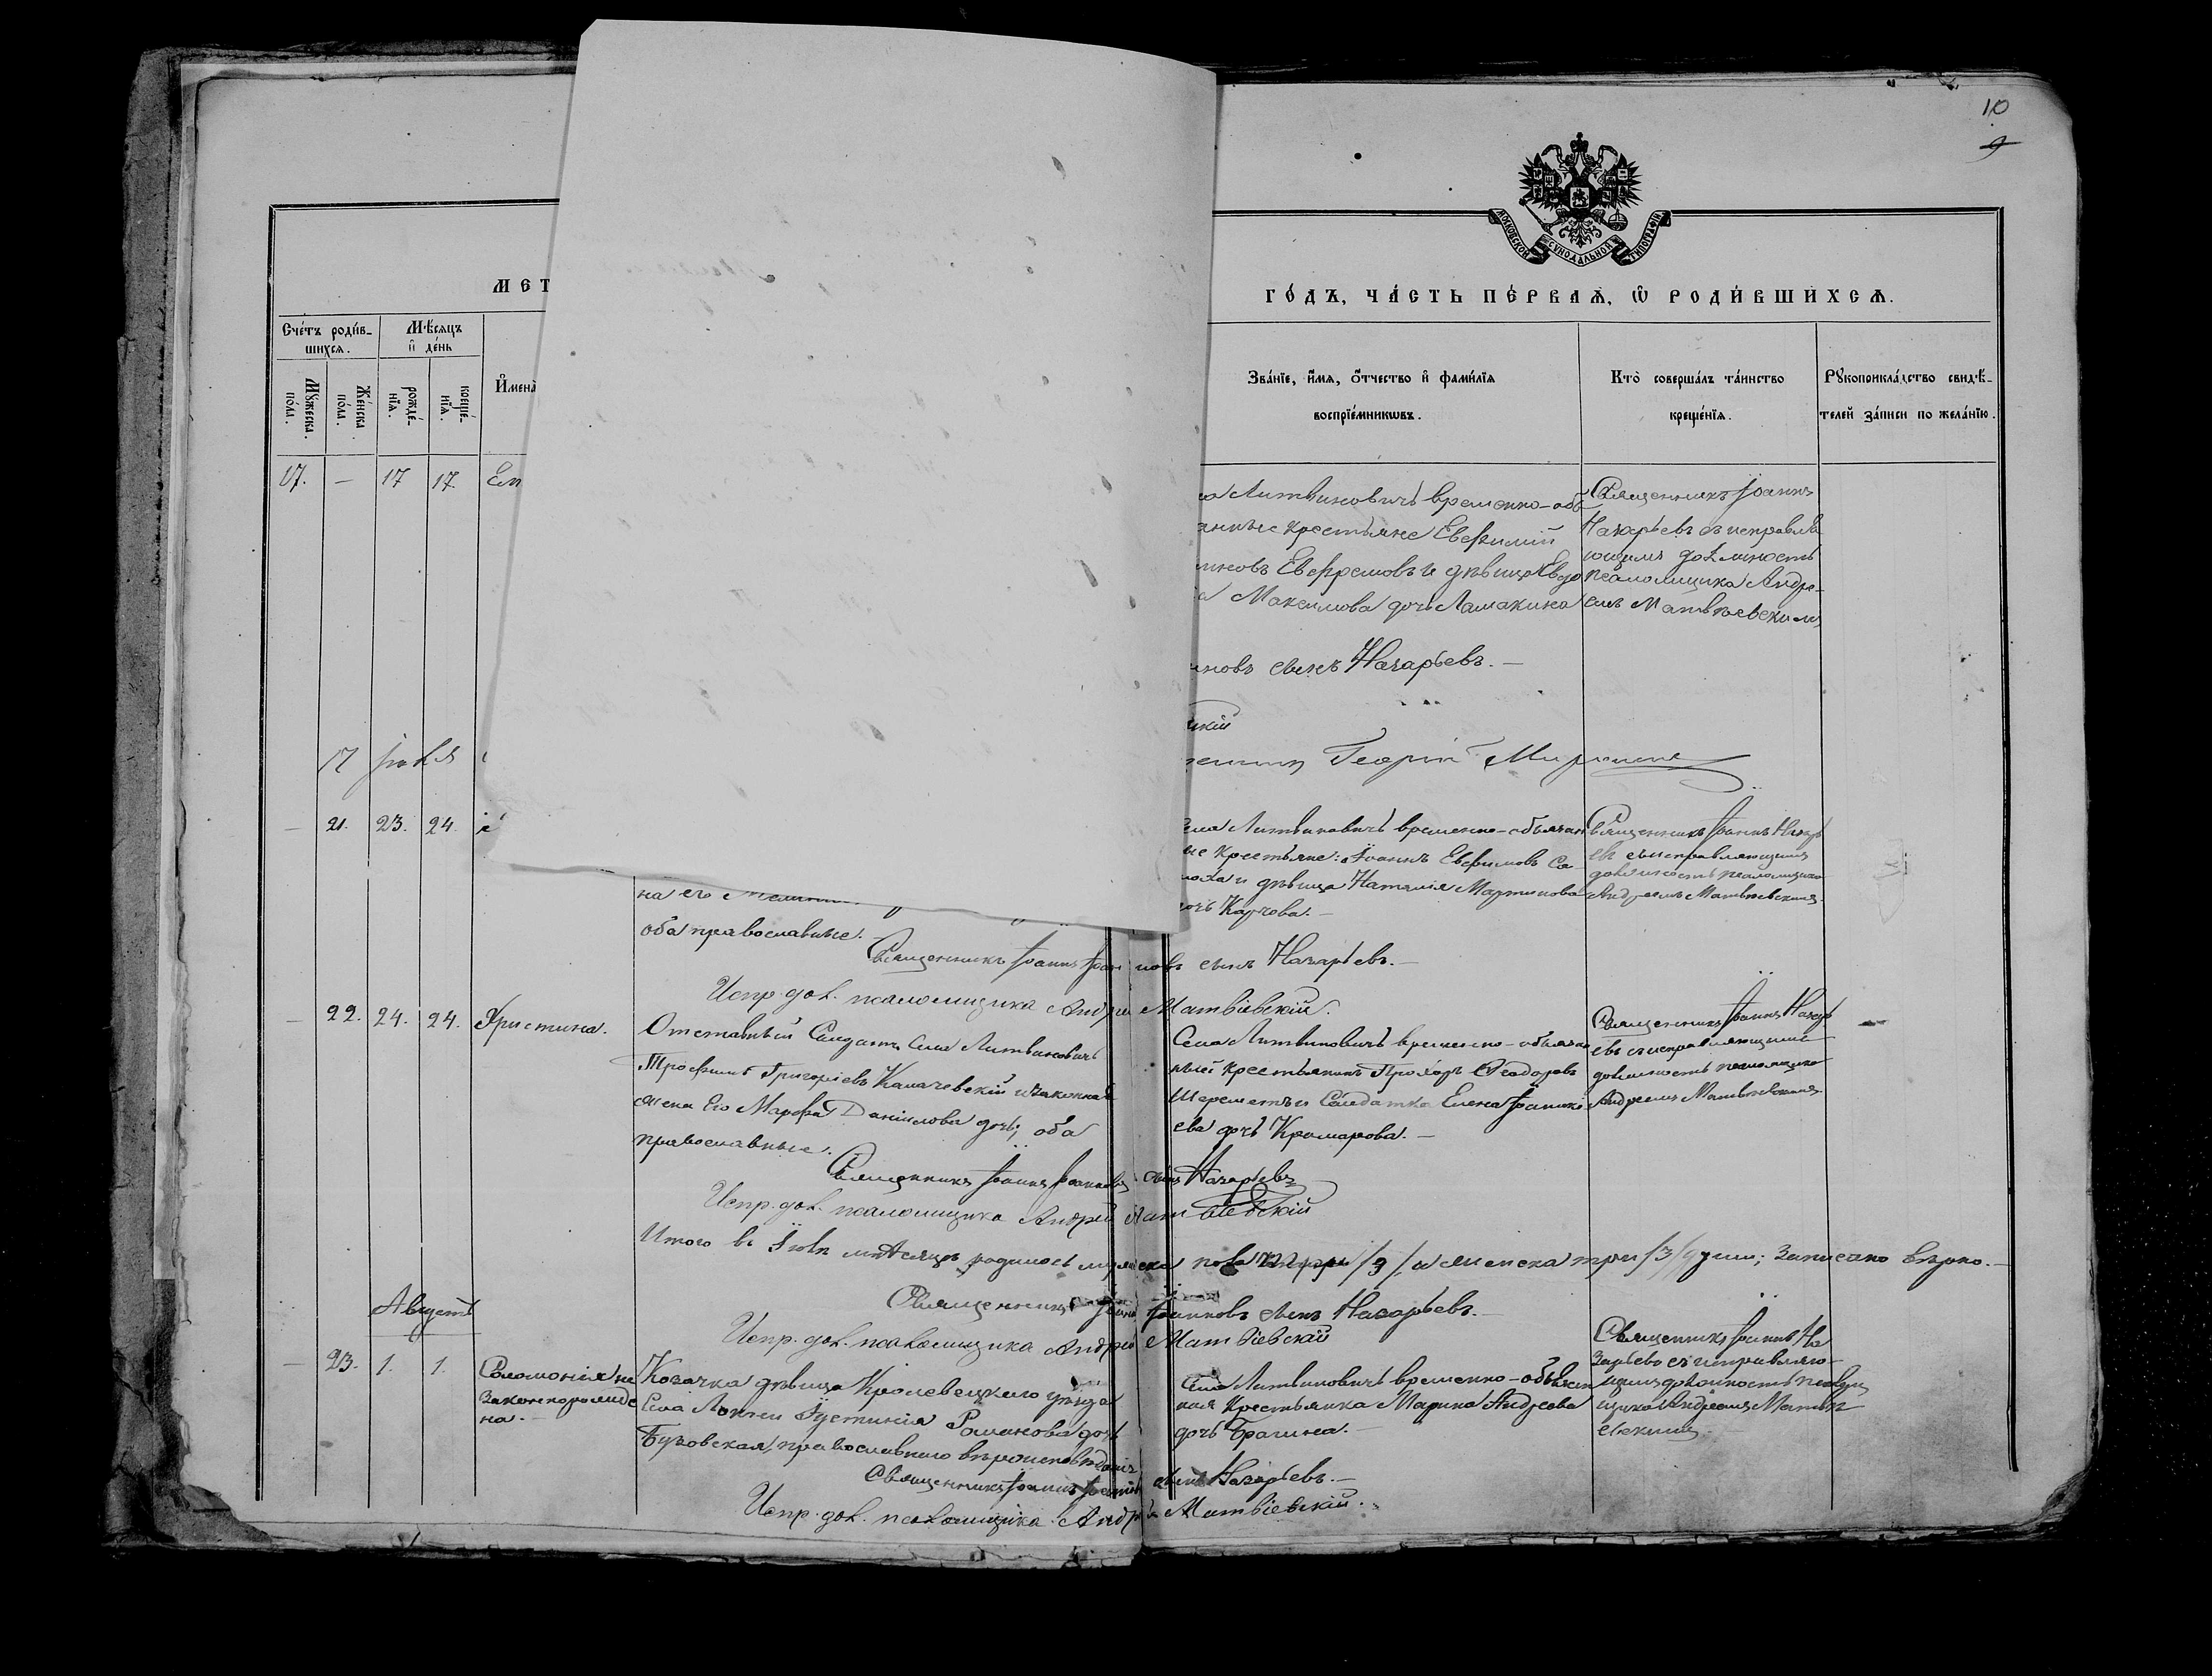 10
9
МОСКОВСКОЙ СѴНОДАЛЬНОЙ ТИПОГРАФІИ
МЕТ
ГО́ДЪ, ЧА́СТЬ ПЕ́РВАѦ, Ѡ҆ РОДИ́ВШИХСѦ.
Сче́тъ роди́в-
шихсѧ.
Мѣ́сѧцъ
и҆ де́нь
Мꙋ́жеска
по́ла.
Же́нска
по́ла.
рожде́-
нїѧ.
креще́-
нїѧ.
И҆мена̀
Зва́нїе, и҆́мѧ, ѻ҆́тчество и҆ фами́лїѧ
воспрїе́мникѡвъ.
Кто̀ соверша́лъ та́инство
креще́нїѧ.
Рꙋкоприкла́дство свидѣ́-
телей за́писи по жела́нїю.
17. — 17 17. Ем
Литвиновичъ временно-обя
крестьяне Евфимій
Евфремовъ и дѣвица Евдо
Максимова дочь Ламакина
Священникъ Іоаннъ
Назарьевъ съ исправля
ющимъ должность
псаломщика Андре-
емъ Матвѣевскимъ
новъ сынъ Назарьевъ. —
скій
17 Іюля
Георгій
— 21. 23. 24.
села Литвиновичъ временно-обязан
ные крестьяне: Іоаннъ Евфимовъ Са-
и дѣвица Наталія Мартинова
дочь Карчева. —
Священникъ Іоаннъ Назарь
евъ съ исправляющимъ
должность псаломщика
Андреемъ Матвѣевскимъ
на его
оба православные. —
Священникъ Іоаннъ Іоанновъ сынъ Назарьевъ. —
Испр. дол. псаломщика Андрей Матвіевскій.
— 22. 24. 24. Христина.
Отставный Салдатъ Села Литвиновичъ
Трофимъ Григоріевъ Калачевскій и законная
жена Его Марфа Даніилова дочь; оба
православные.
Села Литвиновичъ временно-обязан
ный крестьянинъ Прохоръ Ѳеодоровъ
Шереметъ и Салдатка Елена
ева дочь Крамарова. —
Священникъ Іоаннъ Назарь
евъ съ исправляющимъ
должность псаломщика
Андреемъ Матвѣевскимъ
Священникъ Іоаннъ Іоанновъ сынъ Назарьевъ
Испр. дол. псаломщика Андрей Матвіевскій
Итого въ Іюлѣ мѣсяцѣ родилось мужеска пола /3/, а женска три /3/ души; записано вѣрно. —
Священникъ Іоаннъ Іоанновъ сынъ Назарьевъ. —
Испр. дол. псаломщика Андрей Матвіевскій
Августъ
— 23. 1. 1. Соломонія не
законнорожде
на. —
Козачка дѣвица Кролевецкаго уѣзда
Села Локни Іустинія Романова дочь
Бузовская, православнаго вѣроисповѣданія
Села Литвиновичъ временно-обязан
ная крестьянка Марина Андреева
дочь Брагина. —
Священникъ Іоаннъ На
зарьевъ съ исправляю-
щимъ должность псалом
щика Андреемъ Матвѣ
евскимъ
Священникъ Іоаннъ Іоанновъ сынъ Назарьевъ. —
Испр. дол. псаломщика Андрей Матвіевскій.